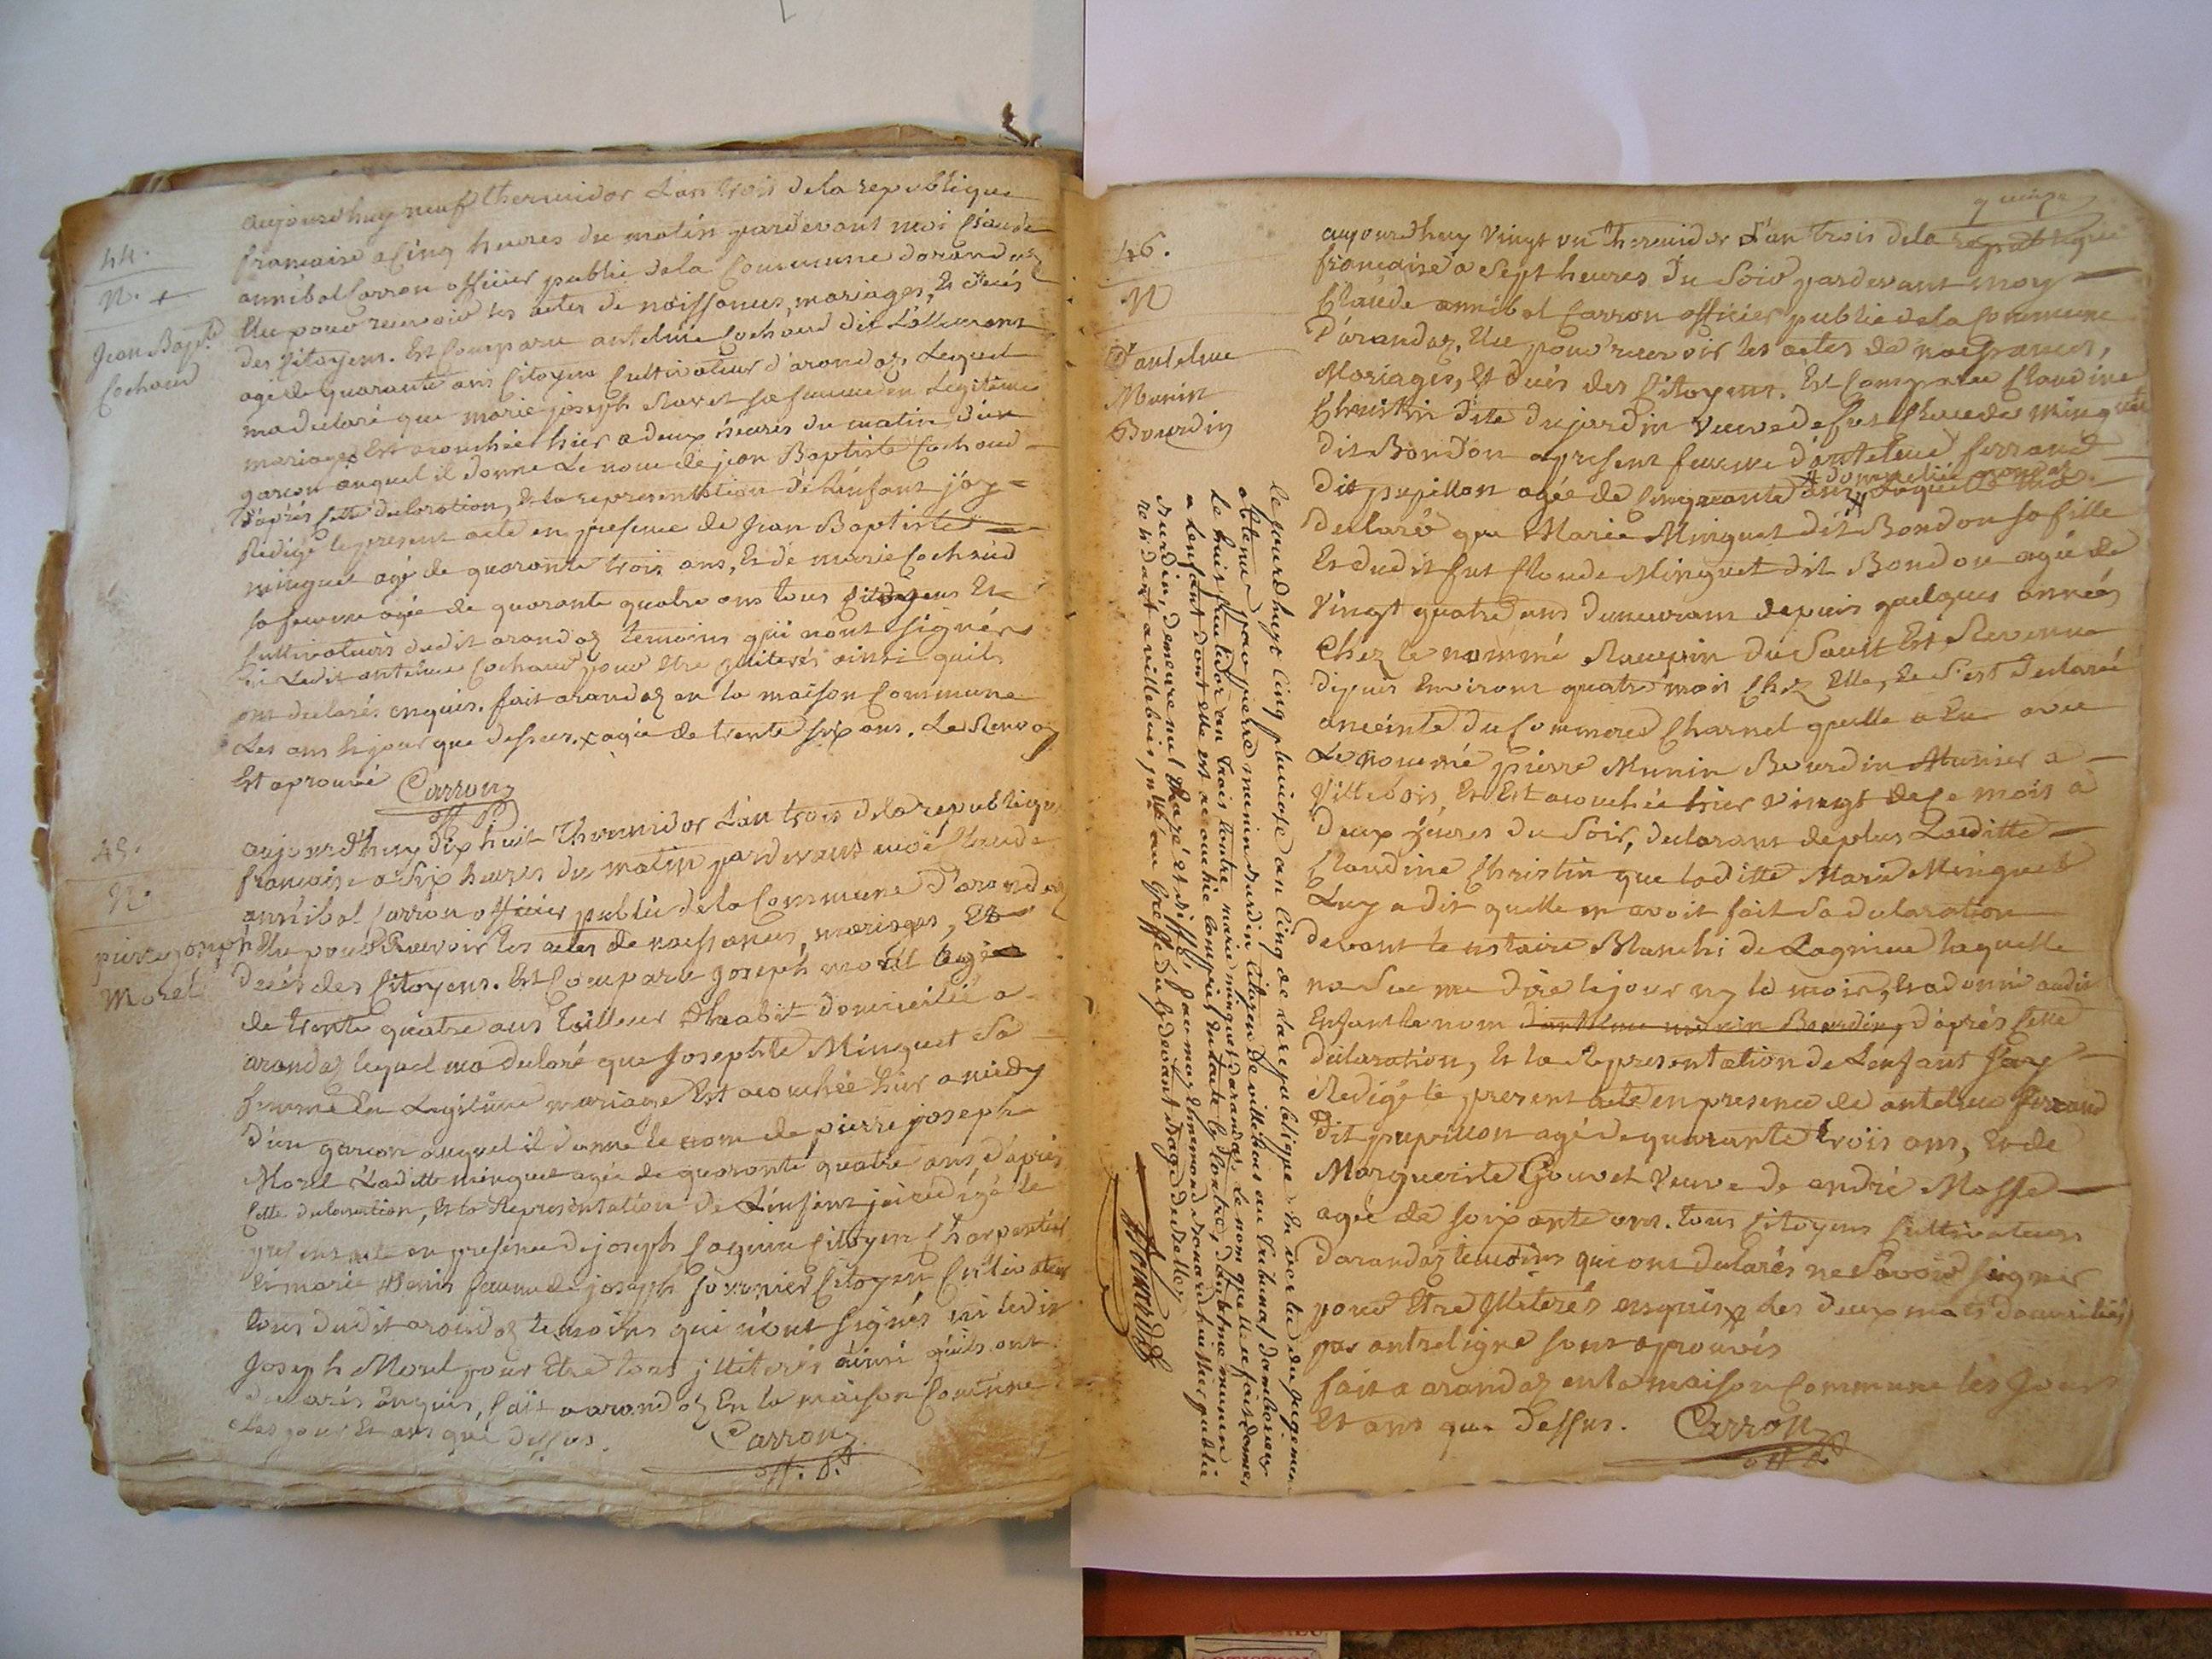 44.
N. +
Jean Bapte
Cochaud
aujourdhuy neuf thermidor L'an trois de la republique
francaise a Cinq heures du matin pardevant moi Claude
annibal Carron officier public dela Commune darandas
Elu pour recevoir les actes de naissances, mariages, Et deces
des Citoyens. Est Comparu antelme Cochaud dit
agé de quarante ans Citoyen Cultivateur d'arandas Lequel
ma declaré que marie joseph sa femme en Legitime
mariage x Est acouchée hier a deux heures du matin d'un
garcon auquel il donne Le nom de jean Baptiste Cochaud
D'après cette declaration, Et la representation de L'enfant jay
Redigé le present acte en presence de Jean Baptiste
minguet agé de quarante trois ans, Et de marie Cochaud
sa femme agée de quarante quatre ans tous Citoyens Et
Cultivateurs dudit arandas temoins qui nont signés
ni Ledit antelme Cochaud pour Etre illiterés ainsi quils
ont declarés enquis. fait arandas en la maison Commune
Les ans Et jour que dessus. x agée de trente six ans. Le Renvoy
Est aprouvé Carron
off. P.
45.
N.
pierre joseph
Morel
aujourd'huy dix huit Thermidor L'an trois dela republique
francaise a Six heures du matin pardevant moi Claude
annibal Carron officier public dela Commune D'arandas
Elu pour Recevoir les actes de naissances, mariages, Et
Decés des Citoyens. Est Comparu joseph morel agé
de trente quatre ans tailleur d'habit domicilié a
arandas lequel ma declaré que Josephte Minguet Sa
femme En Legitime mariage Est acouchée hier a midy
D'un garcon auquel il donne le nom de pierre joseph
Morel Laditte minguet agée de quarante quatre ans, d'après
Cette declaration, Et la Representation de L'enfant jai redigé le
present acte en presence de joseph Citoyen Charpentier
Et marie femme de joseph Citoyen Cultivateur
tous dudit arandas temoins qui n'ont signés ni ledit
Joseph Morel pour Etre tous illiterés ainsi quils ont
declarés Enquis, fait a arandas En la maison Commune
Les jour Et ans que Dessus.
Carron
off. P.
quinze
46.
N
D'antelme
Munin
Bourdin
aujourdhuy Vingt un Thermidor L'an trois dela republique
francaise a Sept heures du Soir pardevant moy
Claude annibal Carron officier public dela Commune
D'arandas, Elu pour recevoir les actes de naissances,
Mariages, Et decés des Citoyens. Est Comparue Claudine
Christin ditte dujardin Veuve de feu Claude Minguet
dit Bondon apresent femme d'antelme ferrand
# domiciliée arandas
Dit papillon agée de Cinquante ans # Laquelle ma
declaré que Marie Minguet dit Bondon sa fille
Et dudit feu Claude Minguet dit Bondon agée de
Vingt quatre ans demeurant depuis quelques années
Chez le nommé du Sault Est Revenue
depuis Environt quatre mois Chez Elle, Et S'est declarée
anceinte du Commerce Charnel quelle a Eu avec
Le nommé pierre Munin Bourdin Munier a
Villebois, Et Est acouchée hier Vingt de Ce mois a
Deux heures du Soir, declarant deplus Laditte
Claudine Christin que laditte Marie Minguet
Luy a dit quelle en avoit fait Sa declaration
devant le notaire Blanchi de Lagnieu laquelle
na Sue me dire le jour ny le mois, Et a donné audit
Enfant le nom d'antelme munin Bourdin, d'aprés Cette
declaration, Et la Representation de L'enfant Jay
Redigé le present acte en presence de antelme ferrand
Dit papillon agé de quarante trois ans, Et de
Marguerite Gouvet Veuve de andré Masse
agée de soixante ans. tous Citoyens Cultivateurs
Darandas temoins qui ont declarés ne Savoir Signer
pour Etre illiterés enquis x les deux mots domiciliée
par entreligne sont aprouvés
fait a arandas en la maison Commune les Jour
Et ans que Dessus. Carron
off P.
Cejourdhuy Cinq pluviose an Cinq de la republique En vertu du jugement
obtenu par pierre munin Burdin Citoyen de villebois au tribunal dambérieux
Le huit an trois Contre marie minguet darandas, le nom quelle a fait donner
a Lenfant dont elle est acouchie Compris En L'acte Cy Contre, D'antelme munin
Burdin, demeure nul Rayé et Biffé, par moy huissier public
residant a villebois, au Greffe du juge